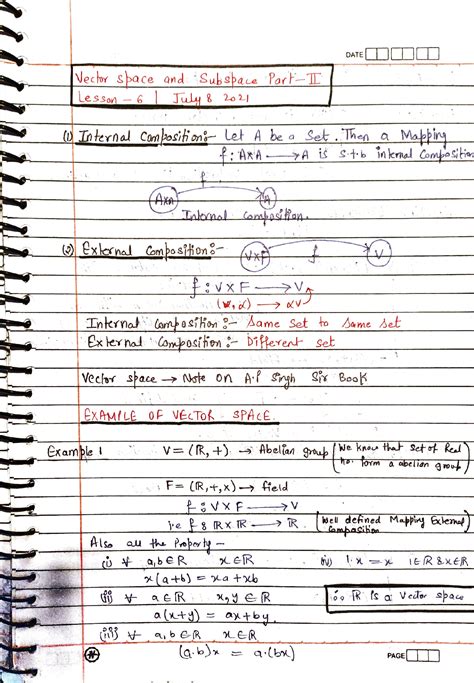 DATE
Vector space and Subspace Part-II
Lesson - 6 | July 8 2021
(1) Internal Composition:- Let A be a Set. Then a Mapping
f: A×A → A is s.t.b internal Composition
f
A×A A
Internal Composition.
(2) External Composition:- V×F f V
f: V×F → V
(v, α) → αV
Internal Composition:- Same set to Same set
External Composition:- Different set
Vector space → Note ON A.P Singh Sir Book
EXAMPLE OF VECTOR SPACE.
Example 1 V = (R, +) → Abelian group (We know that set of Real no. form a abelian group)
F = (R, +, x) → field
f: V×F → V
i.e f: R×R → R (Well defined Mapping External Composition)
Also all the Property -
(i) ∀ a, b ∈ R x ∈ R iv) 1·x = x 1∈R & x∈R
x(a+b) = xa + xb
(ii) ∀ a ∈ R x, y ∈ R ∴ R is a Vector space
a(x+y) = ax + by
(iii) ∀ a, b ∈ R x ∈ R
(a.b)x = a.(bx)
PAGE